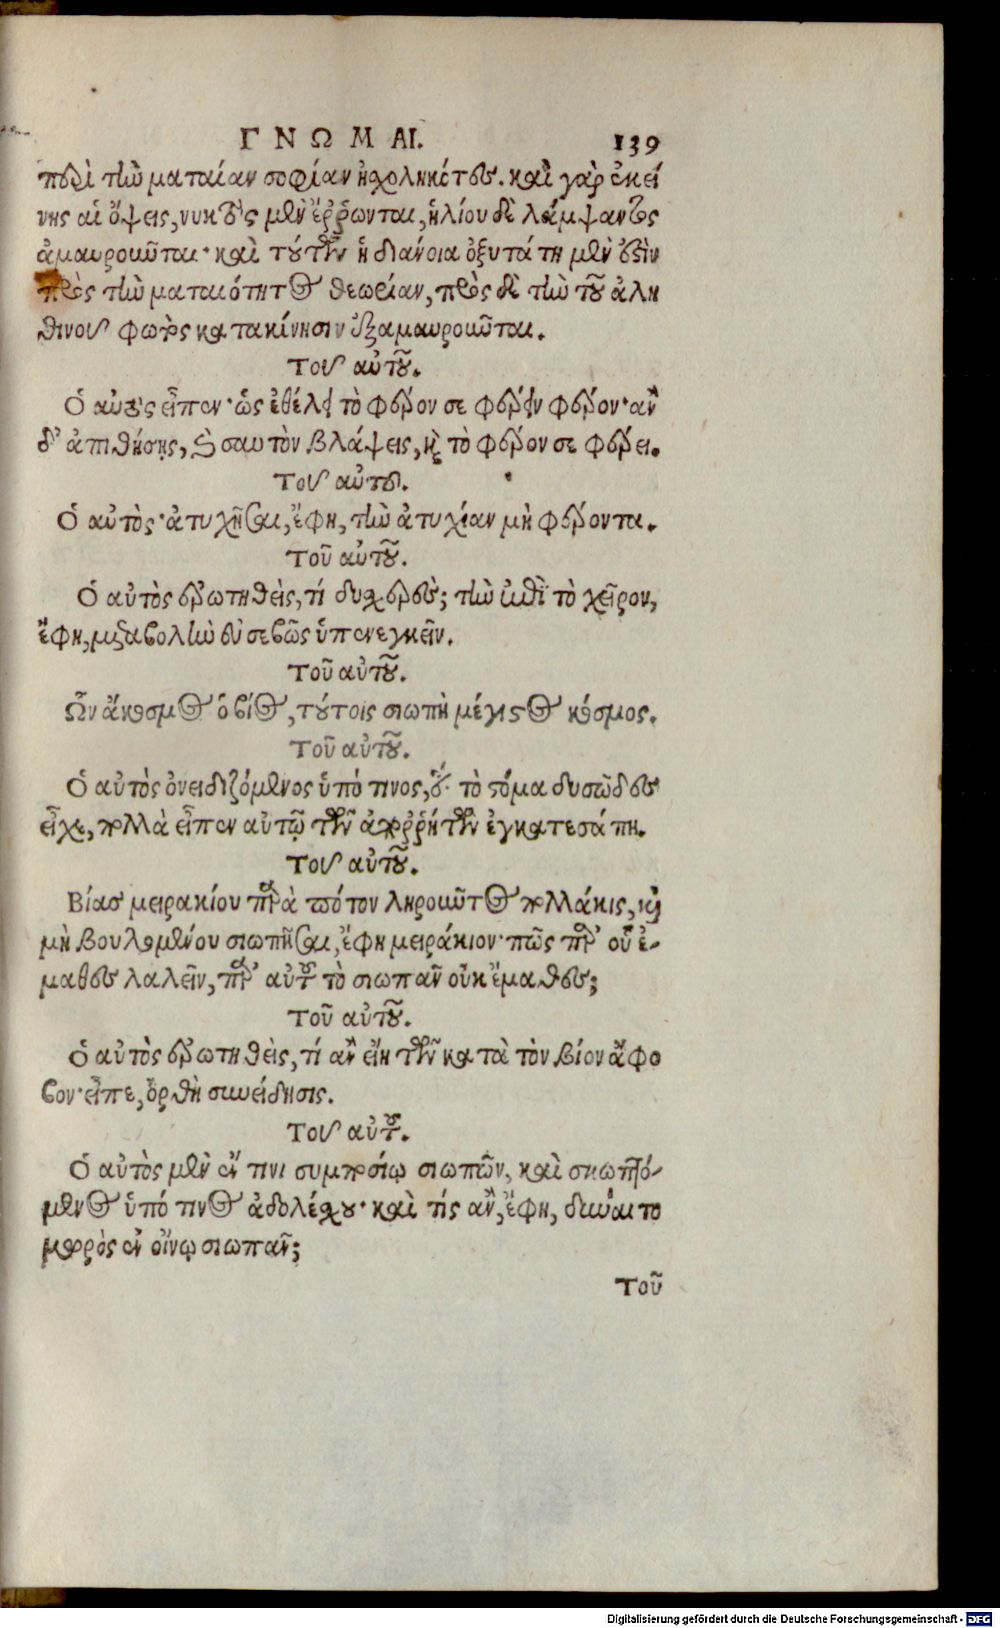 ΓΝΩΜΑΙ. 139
περὶ τὴν ματαίαν σοφίαν ἠσχοληκότες. καὶ γὰρ ἐκεί
νης αἱ ὄψεις, νυκτὸς μὲν ἔῤῥωνται, ἡλίου δὲ λάμψαντος
ἀμαυροῦνται· καὶ τούτων ἡ διάνοια ὀξυτάτη μέν ἐστιν
πρὸς τὴν ματαιότητος θεωρίαν, πρὸς δὲ τὴν τοῦ ἀλη
θινοῦ φωτὸς κατακίνησιν ἐξαμαυροῦται.
Τοῦ αὐτοῦ.
Ὁ αὐτὸς εἶπεν· ὡς ἐθέλει τὸ φέρον σε φέρειν φέρου· ἂν
δ' ἀπιθήσῃς, καὶ σαυτὸν βλάψεις, καὶ τὸ φέρον σε φέρει.
Τοῦ αὐτοῦ.
Ὁ αὐτὸς· ἀτυχῆσαι, ἔφη, τὴν ἀτυχίαν μὴ φέροντα.
Τοῦ αὐτοῦ.
Ὁ αὐτὸς ἐρωτηθεὶς, τί δυσχερές; τὴν ἐπὶ τὸ χεῖρον,
ἔφη, μεταβολὴν εὐσεβῶς ὑπενεγκεῖν.
Τοῦ αὐτοῦ.
Ὧν ἄκοσμος ὁ βίος, τούτοις σιωπὴ μέγιστος κόσμος.
Τοῦ αὐτοῦ.
Ὁ αὐτὸς ὀνειδιζόμενος ὑπό τινος, ὅτι τὸ στόμα δυσῶδες
εἶχε, πολλὰ εἶπεν αὐτῷ τῶν ἀποῤῥήτων ἐγκατεσάπη.
Τοῦ αὐτοῦ.
Βίας μειρακίου παρὰ πότον ληροῦντος πολλάκις, καὶ
μὴ βουλομένου σιωπῆσαι, ἔφη μειράκιον· πῶς παρ' οὗ ἔ-
μαθες λαλεῖν, παρ' αὐτοῦ τὸ σιωπᾶν οὐκ ἔμαθες;
Τοῦ αὐτοῦ.
Ὁ αὐτὸς ἐρωτηθεὶς, τί ἂν εἴη τῶν κατὰ τὸν βίον ἄφο
βον· εἶπε, ὀρθὴ συνείδησις.
Τοῦ αὐτοῦ.
Ὁ αὐτὸς μὲν ἔν τινι συμποσίῳ σιωπῶν, καὶ σκωπτό-
μενος ὑπό τινος ἀδολέσχου· καὶ τίς ἂν, ἔφη, δύναιτο
μωρὸς ἐν οἴνῳ σιωπᾶν;
Τοῦ
Digitalisierung gefördert durch die Deutsche Forschungsgemeinschaft - DFG